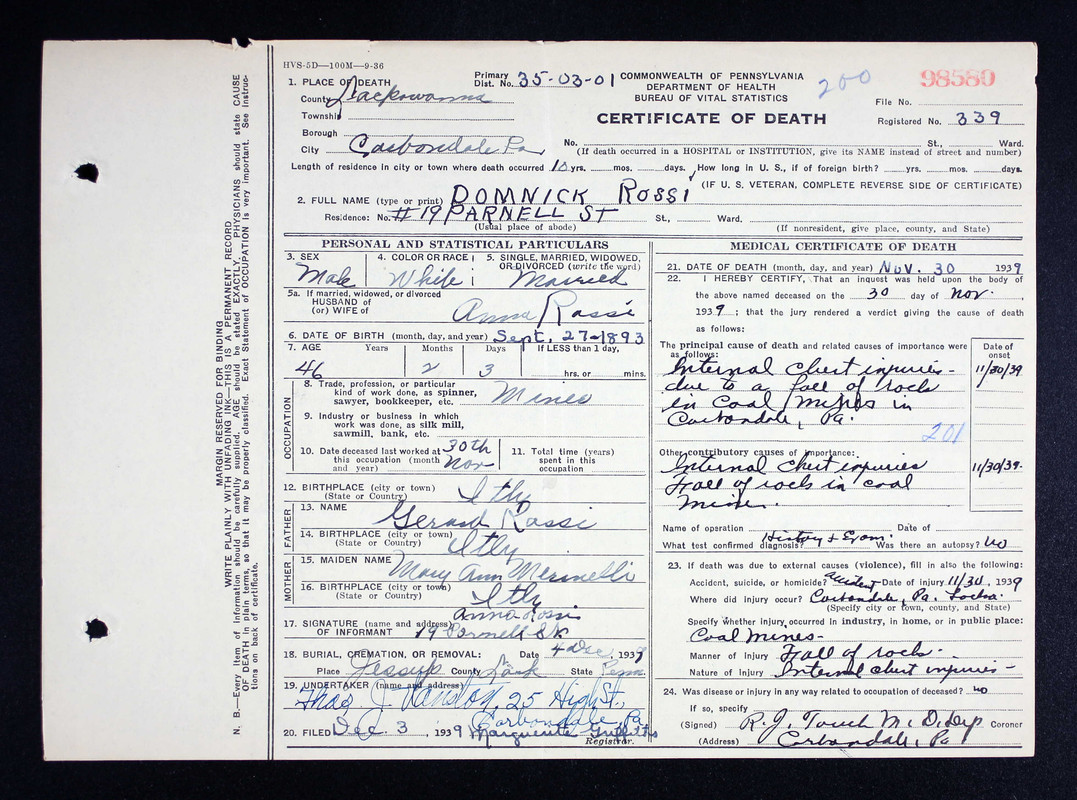 HVS-5D—100M—9-36
Primary
Dist. No. 35-03-01
COMMONWEALTH OF PENNSYLVANIA
DEPARTMENT OF HEALTH
BUREAU OF VITAL STATISTICS
CERTIFICATE OF DEATH
200
98580
File No.
Registered No. 339
1. PLACE OF DEATH
County Lackawanna
Township
Borough
City Carbondale Pa
No. St., Ward.
(If death occurred in a HOSPITAL or INSTITUTION, give its NAME instead of street and number)
Length of residence in city or town where death occurred 10 yrs. mos. days. How long in U. S., if of foreign birth? yrs. mos. days.
(IF U. S. VETERAN, COMPLETE REVERSE SIDE OF CERTIFICATE)
2. FULL NAME (type or print) DOMNICK ROSSI
Residence: No. #19 PARNELL ST St., Ward.
(Usual place of abode)
(If nonresident, give place, county, and State)
PERSONAL AND STATISTICAL PARTICULARS
3. SEX
Male
4. COLOR OR RACE
White
5. SINGLE, MARRIED, WIDOWED,
OR DIVORCED (write the word)
Married
5a. If married, widowed, or divorced
HUSBAND of
(or) WIFE of
Anna Rossi
6. DATE OF BIRTH (month, day, and year) Sept. 27-1893
7. AGE Years Months Days If LESS than 1 day,
46 2 3 hrs. or mins.
OCCUPATION
8. Trade, profession, or particular
kind of work done, as spinner,
sawyer, bookkeeper, etc.
9. Industry or business in which
work was done, as silk mill,
sawmill, bank, etc.
10. Date deceased last worked at
this occupation (month
and year)
30th
Nov
11. Total time (years)
spent in this
occupation
12. BIRTHPLACE (city or town)
(State or Country)
Itly
FATHER
13. NAME
Gerard Rossi
14. BIRTHPLACE (city or town)
(State or Country)
Itly
MOTHER
15. MAIDEN NAME
Mary Ann Merinelli
16. BIRTHPLACE (city or town)
(State or Country)
Itly
17. SIGNATURE (name and address)
OF INFORMANT
Anna Rossi
19 Parnell
18. BURIAL, CREMATION, OR REMOVAL: Date 4 Dec, 1939
Place Jessup County Lack State Penn.
19. UNDERTAKER (name and address)
Thos. J. 25 High St.,
Carbondale, Pa
20. FILED Dec. 3, 1939 Marguerite Griffiths
Registrar.
MEDICAL CERTIFICATE OF DEATH
21. DATE OF DEATH (month, day, and year) Nov. 30 1939
22. I HEREBY CERTIFY, That an inquest was held upon the body of
the above named deceased on the 30 day of Nov.,
1939; that the jury rendered a verdict giving the cause of death
as follows:
The principal cause of death and related causes of importance were
as follows:
Date of
onset
Internal chest injuries-
due to a fall of rock
in Coal Mines in
Carbondale, Pa.
11/30/39
201
Other contributory causes of importance:
Internal chest injuries
Fall of rock in coal
mine.
11/30/39.
Name of operation Date of
What test confirmed diagnosis? History & Exam. Was there an autopsy? No
23. If death was due to external causes (violence), fill in also the following:
Accident, suicide, or homicide? Accident Date of injury 11/30, 1939
Where did injury occur? Carbondale, Pa. Lacka.
(Specify city or town, county, and State)
Specify whether injury occurred in industry, in home, or in public place:
Coal Mines-
Manner of injury Fall of rock.
Nature of injury Internal chest injuries-
24. Was disease or injury in any way related to occupation of deceased? No
If so, specify
(Signed) R. J. M. D. Dep. Coroner
(Address) Carbondale, Pa
MARGIN RESERVED FOR BINDING
WRITE PLAINLY WITH UNFADING INK—THIS IS A PERMANENT RECORD
N. B.—Every item of information should be carefully supplied. AGE should be stated EXACTLY. PHYSICIANS should state CAUSE
OF DEATH in plain terms, so that it may be properly classified. Exact Statement of OCCUPATION is very important. See instruc-
tions on back of certificate.